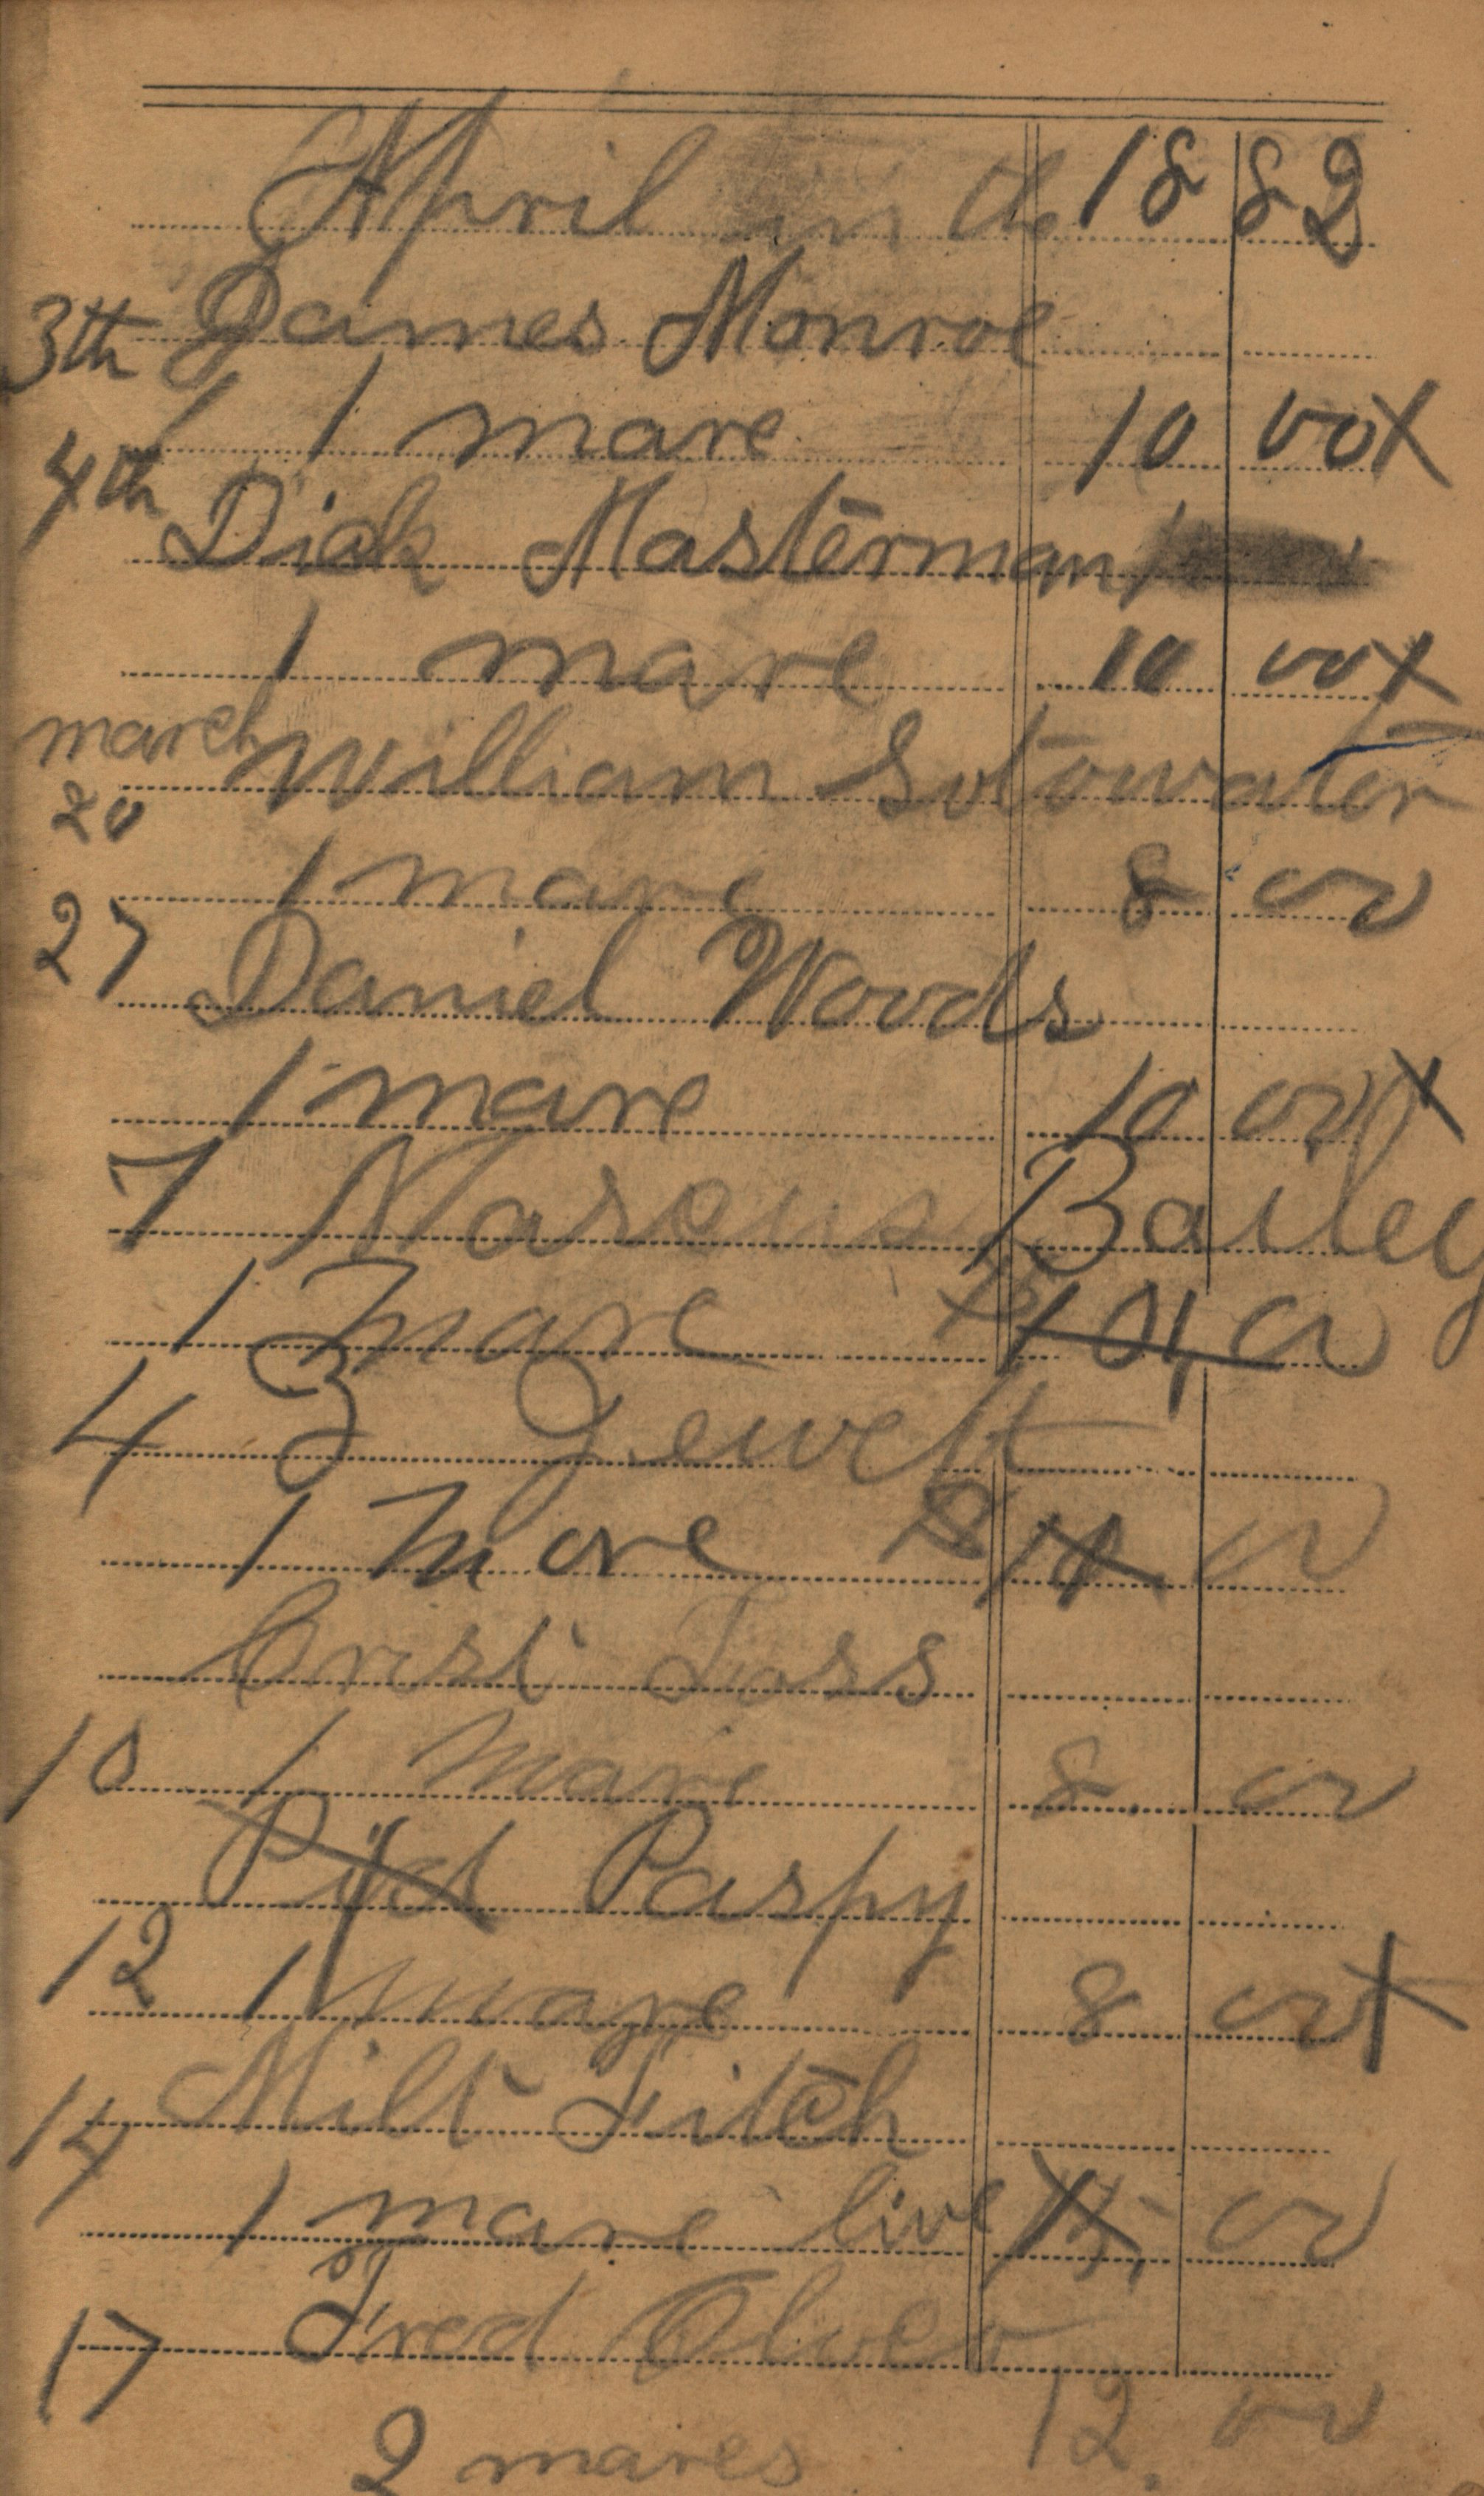 April in the 1882
3th James Monroe
1 mare 10 00 X
4th Dick Masterman
1 mare 10 00 X
march 20 William Sotowater
1 mare 8 00
27 Daniel Woods
1 mare 10 00 X
7 Marcus Bailey
1 mare 8 10, 00
4 Z Jewett
1 mare 8 10 00
Crist Foss
10 1 mare 8. 00
Pashy
12 1 mare 8 00 X
14 Milt Fitch
1 mare live 00
17 Fred
2 mares 12. 00